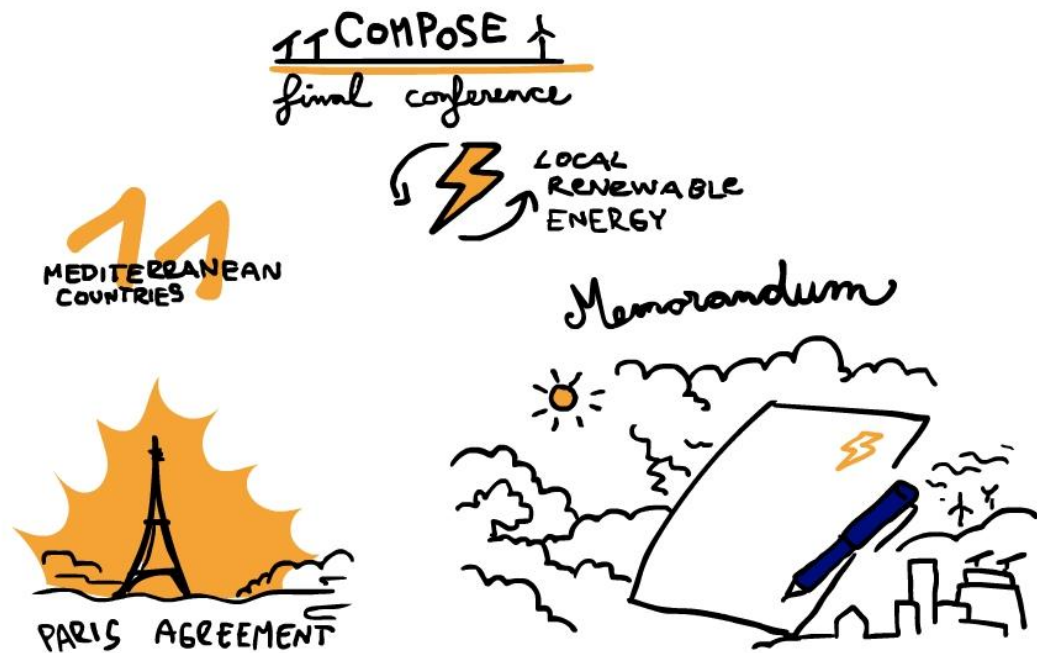 COMPOSE
final conference
LOCAL
RENEWABLE
ENERGY
11
MEDITERRANEAN
COUNTRIES
Memorandum
PARIS AGREEMENT